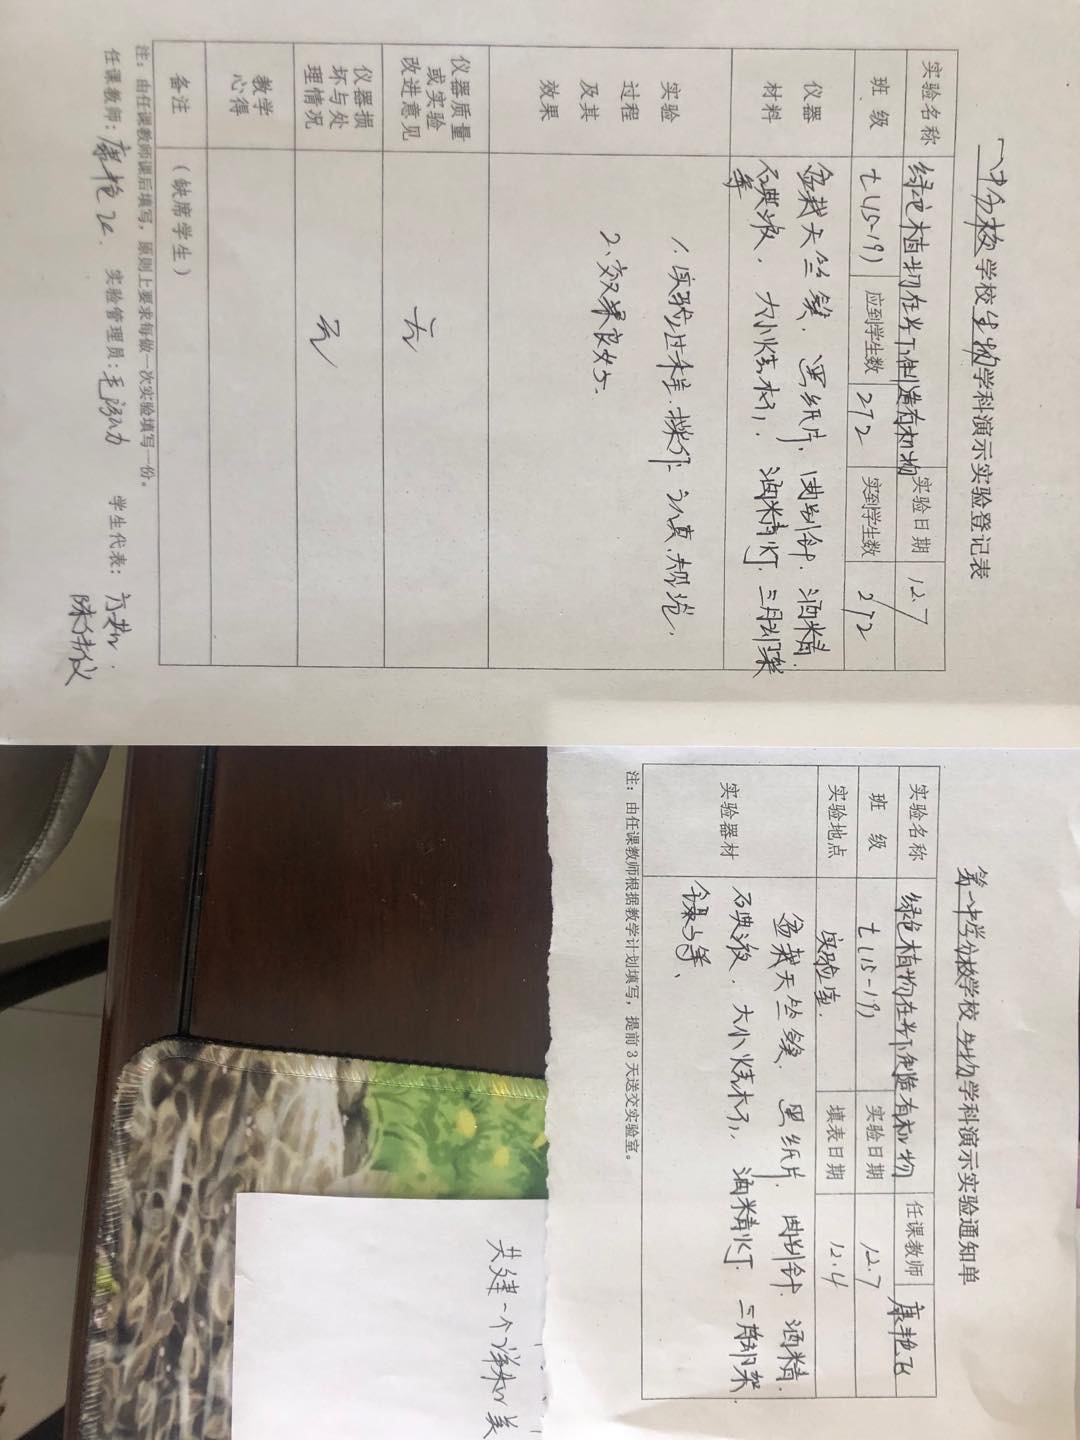 一中分校学校生物学科演示实验登记表
实验名称 绿色植物在光下制造有机物 实验日期 12.7
班 级 七(15-19) 应到学生数 272 实到学生数 272
仪器材料 盆栽天竺葵、黑纸片、曲别针、酒精、
碘液、大小烧杯、酒精灯、三脚架
等
实验过程及其效果 1、实验过程操作认真、规范、
2、效果良好。
仪器质量或实验改进意见 无
仪器损坏与处理情况 无
教学心得
备注 (缺席学生)
注：由任课教师课后填写，原则上要求每做一次实验填写一份。
任课教师：康艳飞 实验管理员：毛 学生代表：
陈
第一中学分校学校生物学科演示实验通知单
实验名称 绿色植物在光下制造有机物 任课教师 康艳飞
班 级 七(15-19) 实验日期 12.7
实验地点 实验室. 填表日期 12.4
实验器材 盆栽天竺葵、黑纸片、曲别针、酒精、
碘液、大小烧杯、酒精灯、三脚架
镊子等、
注：由任课教师根据教学计划填写，提前 3 天送交实验室。
共建一个详和美